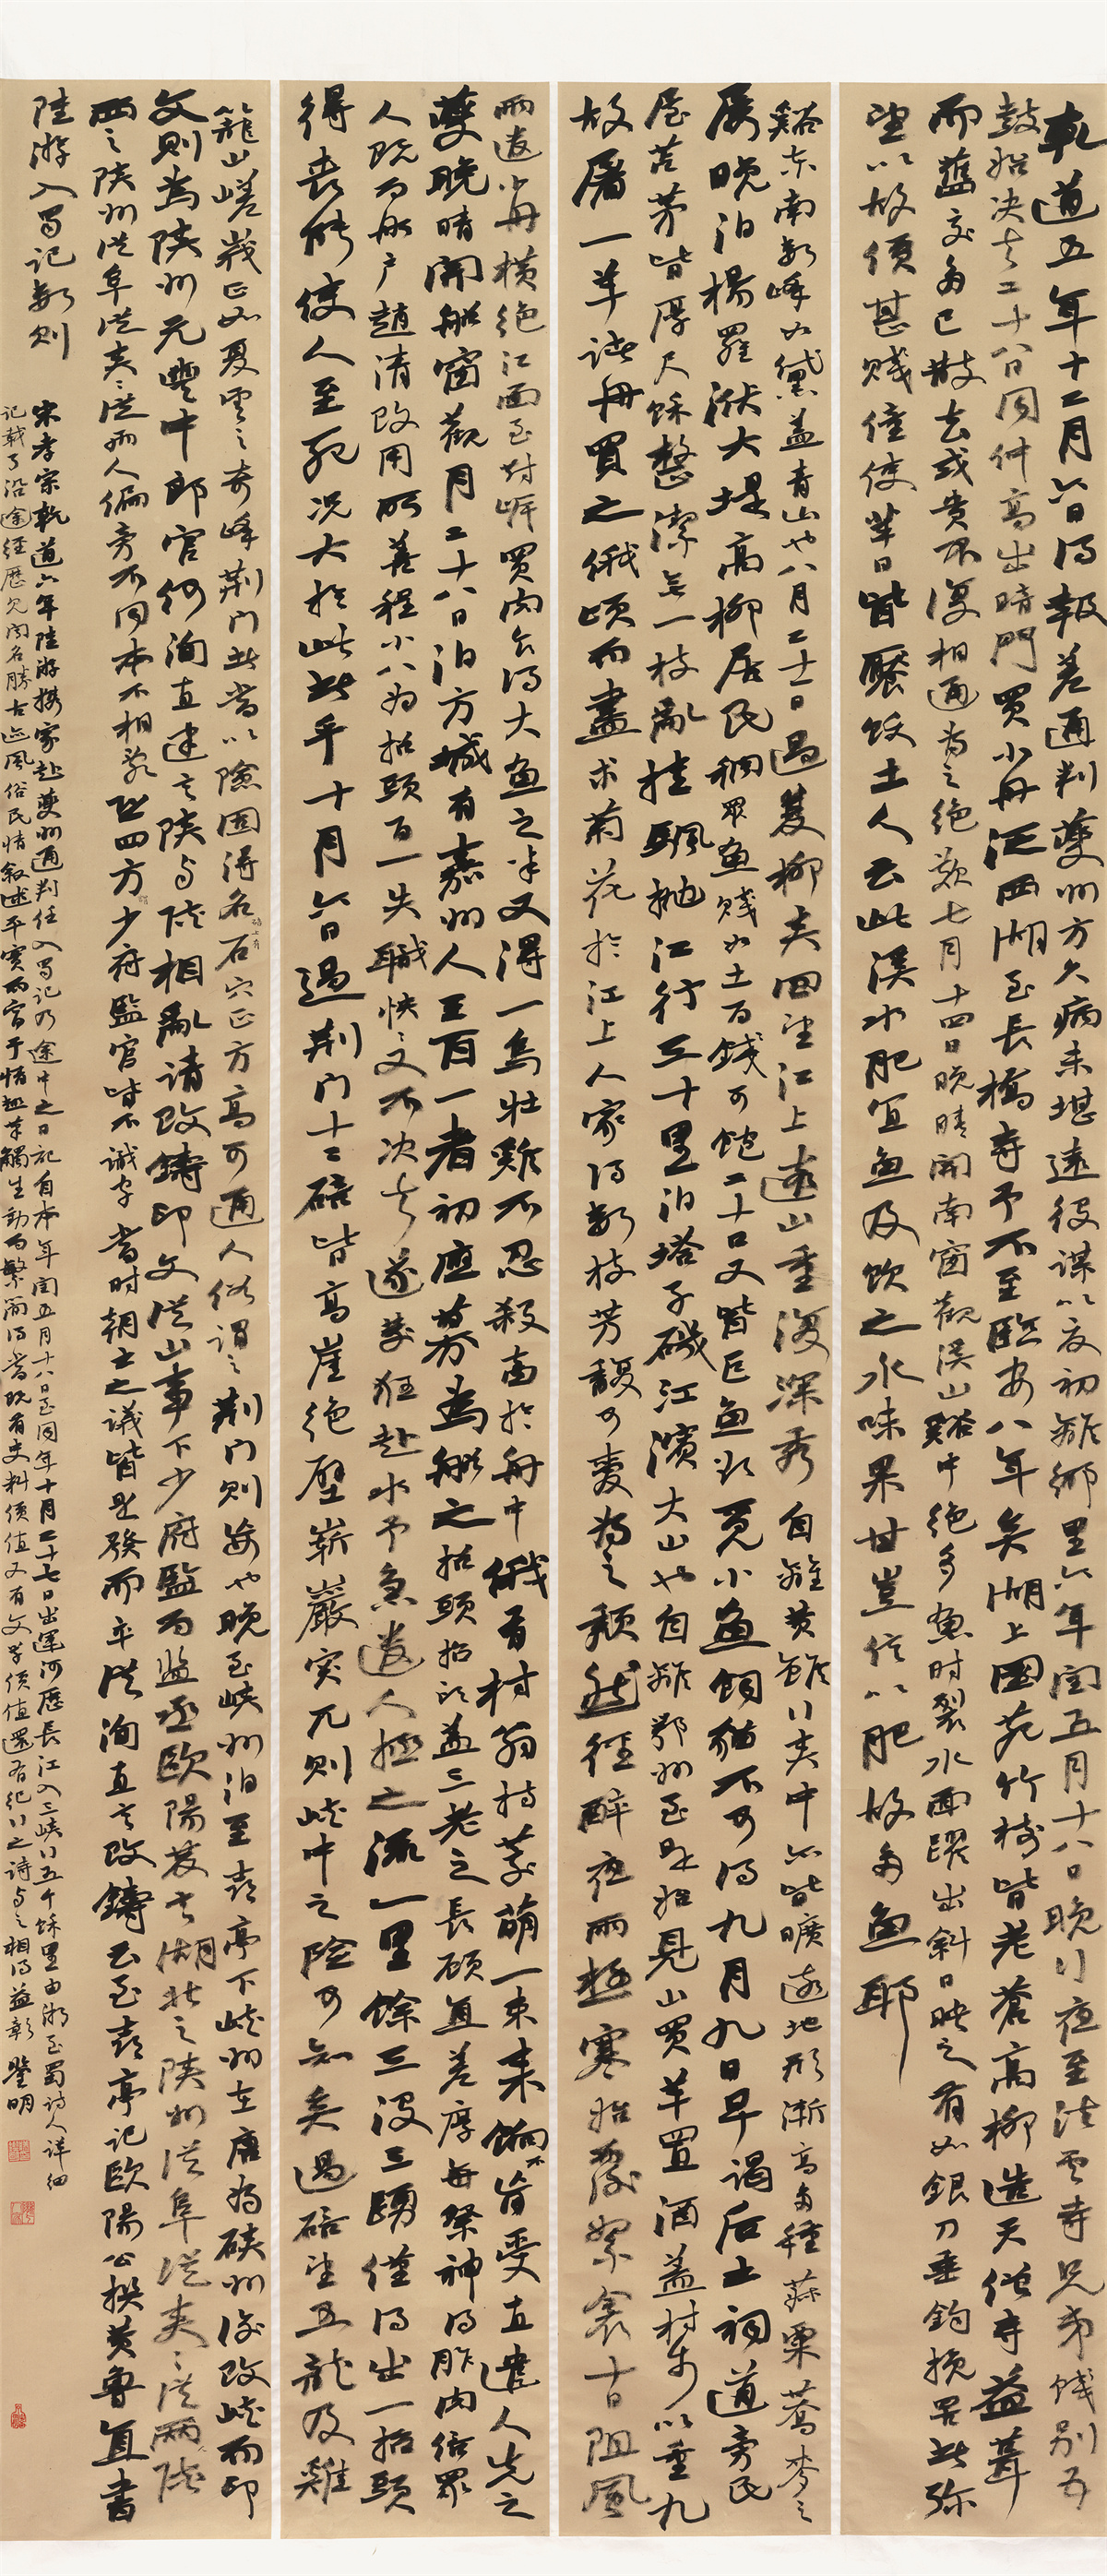 乾道五年十二月六日得報差通判夔州方久病未堪遠役謀以夏初離鄉里六年閏五月十八日晚行夜至法雲寺兄弟餞別五
鼓始決去二十八日同仲高出暗門買小舟泛西湖至長橋寺予不至臨安八年矣湖上園苑竹樹皆老蒼高柳造天僧寺益葺
而舊交多已散去或貴不復相通為之絕歎七月十四日晚晴開南窗觀溪山谿中絕多魚時裂水面躍出斜日映之有如銀刀垂鉤挽罟者彌
望以故價甚賤僮使輩日皆饜飫土人云此溪水肥宜魚及飲之水味果甘豈信以肥故多魚耶
谿東南數峰如黛蓋青山也八月二十一日過雙柳夾回望江上遠山重復深秀自離黃雖行夾中亦皆曠遠地形漸高多種菽粟蕎麥之
屬晚泊楊羅洑大堤高柳居民稠眾魚賤如土百錢可飽二十口又皆巨魚欲覓小魚飼貓不可得九月九日早謁后土祠道旁民
屋苫茅皆厚尺餘整潔無一枝亂挂颿拋江行三十里泊塔子磯江濱大山也自離鄂州至是始見山買羊置酒蓋村步以重九
故屠一羊諸舟買之俄頃而盡求菊花於江上人家得數枝芳馥可愛為之頹然徑醉夜雨極寒始覆絮衾十日阻風
雨遣小舟橫絕江面至對岸買肉食得大魚之半又得一烏壯雞不忍殺畜於舟中俄有村翁持菱萌一束來餉不肯受直遣人先之
夔晚晴開船窗觀月二十八日泊方城有嘉州人王百一者初應募為船之招頭招頭蓋三老之長顧直差厚每祭神得胙肉倍眾
人既而船戶趙清改用所善程小八為招頭百一失職怏怏又不決去遂發狂赴水予急遣人拯之流一里餘三沒三踴僅得出一招頭
得喪能使人至死況大於此者乎十月六日過荆门十二碚皆高崖絕壁嶄巖突兀則峽中之險可知矣過碚望五龍及雞
籠山嵯峩正如夏雲之奇峰荆门者當以險固得名石穴正方高可通人俗謂之荆门則妄也晚至峽州泊至喜亭下峽州在唐為硤州後改峽而印
文則為陝州元豐中郎官何洵直建言陝與陜相亂請改鑄印文從山事下少府監而監丞歐陽發言湖北之陝州從阜從夾夾從兩陜
西之陝州從阜從夾夾從兩人偏旁不同本不相亂恐四方少府監官皆不識字當時朝士之議皆是發而卒從洵直言改鑄云至喜亭記歐陽公撰黃魯直書
陸游入蜀记數則
宋孝宗乾道六年陸游携家赴夔州通判任入蜀记乃途中之日記自本年閏五月十八日至同年十月二十七日出運河歷長江入三峽行五千餘里由浙至蜀詩人详细
記載了沿途經歷見聞名勝古迹風俗民情叙述平實而富于情趣筆觸生動而繁簡得當既有史料價值又有文學價值還有紀行之詩與之相得益彰 鑒明